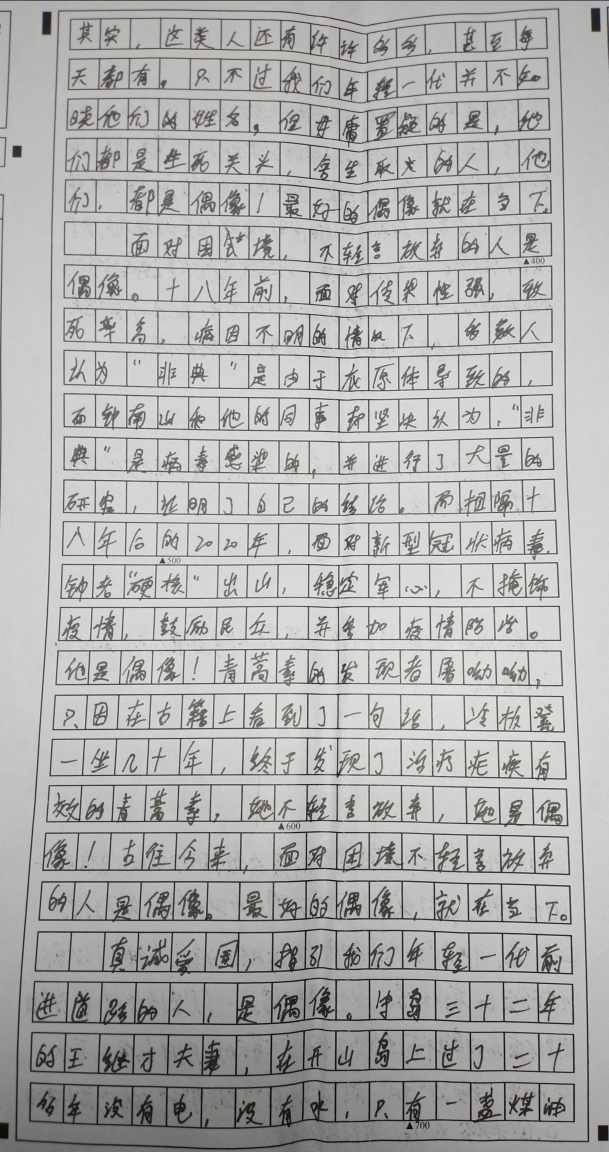 其实，这类人还有许许多多，甚至每
天都有。只不过我们年轻一代并不知
晓他们的姓名，但毋庸置疑的是，他
们都是生死关头，舍生取义的人，他
们，都是偶像！最好的偶像就在当下。
面对困境，不轻言放弃的人是
▲400
偶像。十八年前，面对传染性强，致
死率高，病因不明的情况下，多数人
认为“非典”是由于衣原体导致的，
而钟南山和他的同事却坚决认为，“非
典”是病毒感染的，并进行了大量的
研究，证明了自己的结论。而相隔十
八年后的2020年，面对新型冠状病毒，
▲500
钟老“硬核”出山，稳定军心，不掩饰
疫情，鼓励民众，并参加疫情防治。
他是偶像！青蒿素的发现者屠呦呦，
只因在古籍上看到了一句话，冷板凳
一坐几十年，终于发现了治疗疟疾有
效的青蒿素，她不轻言放弃，她是偶
▲600
像！古往今来，面对困境不轻言放弃
的人是偶像。最好的偶像，就在当下。
真诚爱国，指引我们年轻一代前
进道路的人，是偶像。守岛三十二年
的王继才夫妻，在开山岛上过了二十
多年没有电，没有水，只有一盏煤油
▲700